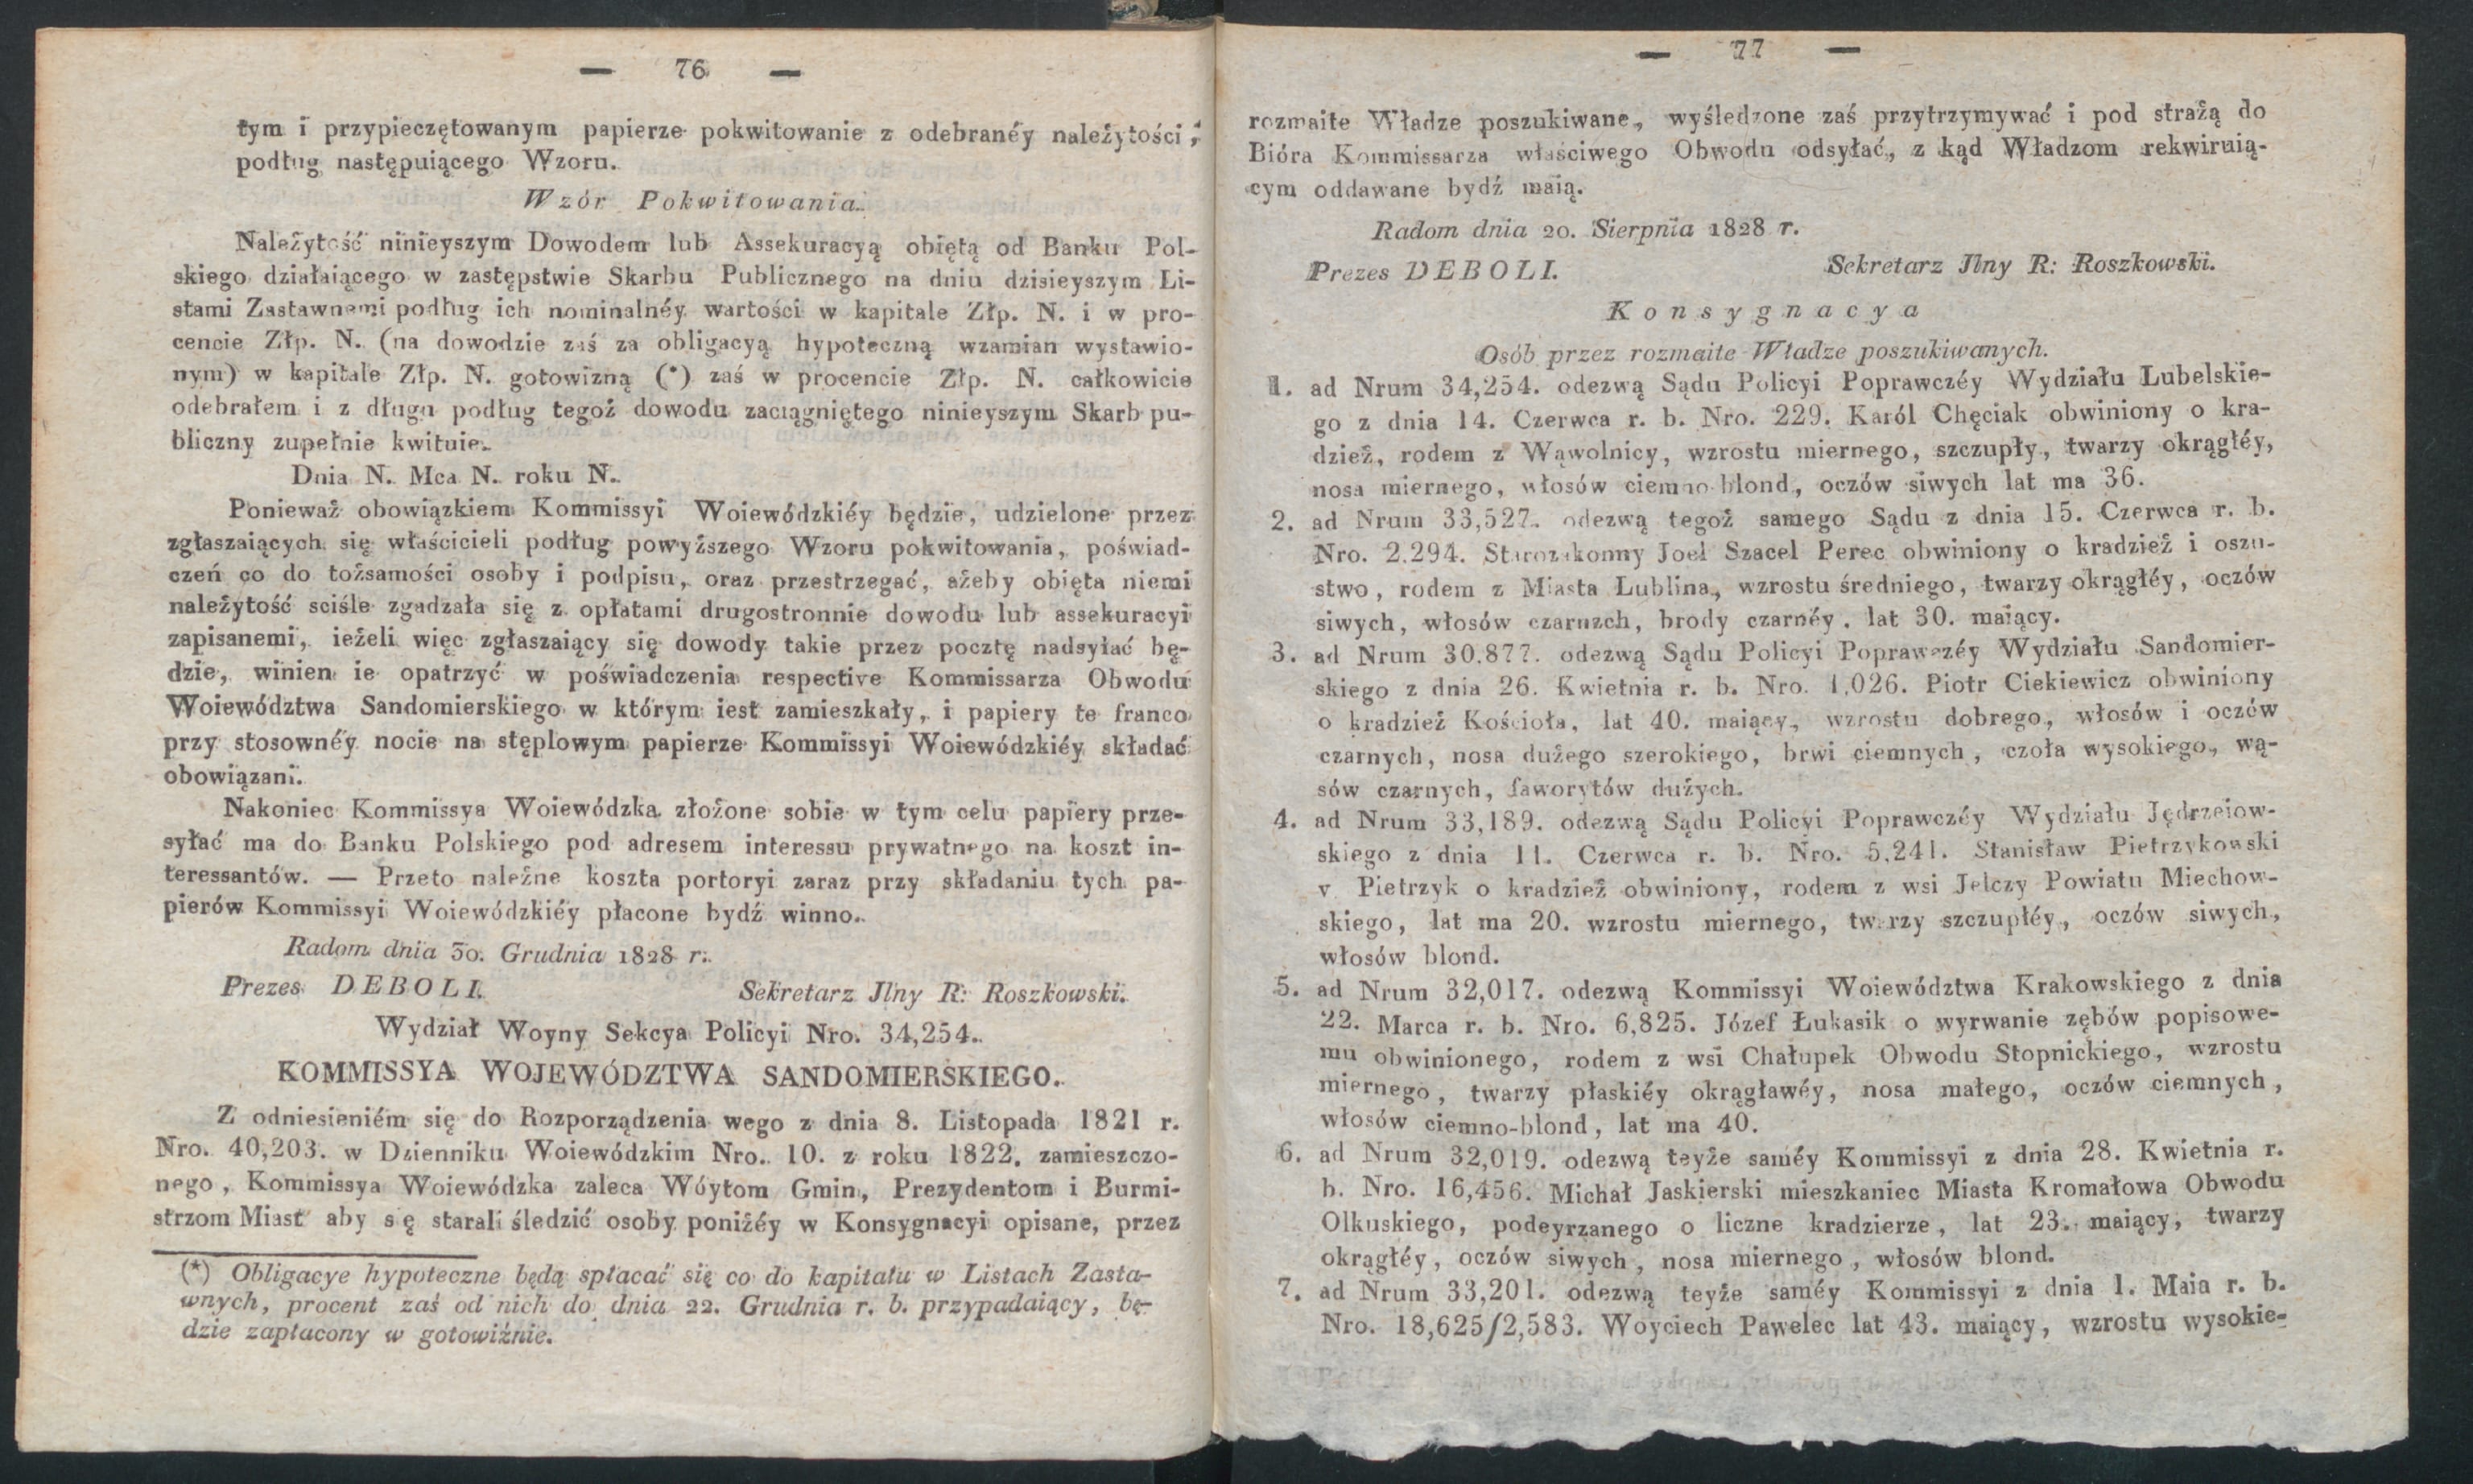 — 76 —
tym i przypieczętowanym papierze pokwitowanie z odebranéy należytości,
podług następuiącego Wzoru.
Wzór Pokwitowania.
Należytość ninieyszym Dowodem lub Assekuracyą obiętą od Banku Pol-
skiego działaiącego w zastępstwie Skarbu Publicznego na dniu dzisieyszym Li-
stami Zastawnemi podług ich nominalnéy wartości w kapitale Złp. N. i w pro-
cencie Złp. N. (na dowodzie zaś za obligacyą hypoteczną wzamian wystawio-
nym) w kapitale Złp. N. gotowizną (*) zaś w procencie Złp. N. całkowicie
odebrałem i z długu podług tegoż dowodu zaciągniętego ninieyszym Skarb pu-
bliczny zupełnie kwituie.
Dnia N. Mca N. roku N.
Ponieważ obowiązkiem Kommissyi Woiewódzkiéy będzie, udzielone przez
zgłaszaiących się właścicieli podług powyższego Wzoru pokwitowania, poświad-
czeń co do tożsamości osoby i podpisu, oraz przestrzegać, ażeby obięta niemi
należytość sciśle zgadzała się z opłatami drugostronnie dowodu lub assekuracyi
zapisanemi, ieżeli więc zgłaszaiący się dowody takie przez pocztę nadsyłać bę-
dzie, winien ie opatrzyć w poświadczenia respective Kommissarza Obwodu
Woiewództwa Sandomierskiego w którym iest zamieszkały, i papiery te franco
przy stosownéy nocie na stęplowym papierze Kommissyi Woiewódzkiéy składać
obowiązani.
Nakoniec Kommissya Woiewódzka złożone sobie w tym celu papiery prze-
syłać ma do Banku Polskiego pod adresem interessu prywatnego na koszt in-
teressantów. — Przeto należne koszta portoryi zaraz przy składaniu tych pa-
pierów Kommissyi Woiewódzkiéy płacone bydź winno.
Radom dnia 30. Grudnia 1828 r.
Prezes DEBOLI. Sekretarz Jlny R: Roszkowski.
Wydział Woyny Sekcya Policyi Nro. 34,254.
KOMMISSYA WOJEWÓDZTWA SANDOMIERSKIEGO.
Z odniesieniém się do Rozporządzenia wego z dnia 8. Listopada 1821 r.
Nro. 40,203. w Dzienniku Woiewódzkim Nro. 10. z roku 1822. zamieszczo-
nego, Kommissya Woiewódzka zaleca Wóytom Gmin, Prezydentom i Burmi-
strzom Miast aby się starali śledzić osoby poniżéy w Konsygnacyi opisane, przez
(*) Obligacye hypoteczne będą spłacać się co do kapitału w Listach Zasta-
wnych, procent zaś od nich do dnia 22. Grudnia r. b. przypadaiący, bę-
dzie zapłacony w gotowiźnie.
— 77 —
rozmaite Władze poszukiwane, wyśledzone zaś przytrzymywać i pod strażą do
Bióra Kommissarza właściwego Obwodu odsyłać, z kąd Władzom rekwiruią-
cym oddawane bydź maią.
Radom dnia 20. Sierpnia 1828 r.
Prezes DEBOLI. Sekretarz Jlny R: Roszkowski.
Konsygnacya
Osób przez rozmaite Władze poszukiwanych.
1. ad Nrum 34,254. odezwą Sądu Policyi Poprawczéy Wydziału Lubelskie-
go z dnia 14. Czerwca r. b. Nro. 229. Karól Chęciak obwiniony o kra-
dzież, rodem z Wąwolnicy, wzrostu miernego, szczupły, twarzy okrągłéy,
nosa miernego, włosów ciemno-blond, oczów siwych lat ma 36.
2. ad Nrum 33,527. odezwą tegoż samego Sądu z dnia 15. Czerwca r. b.
Nro. 2.294. Starozakonny Joel Szacel Perec obwiniony o kradzież i oszu-
stwo, rodem z Miasta Lublina, wzrostu średniego, twarzy okrągłéy, oczów
siwych, włosów czarnzch, brody czarnéy, lat 30. maiący.
3. ad Nrum 30.877. odezwą Sądu Policyi Poprawczéy Wydziału Sandomier-
skiego z dnia 26. Kwietnia r. b. Nro. 1,026. Piotr Ciekiewicz obwiniony
o kradzież Kościoła, lat 40. maiący, wzrostu dobrego, włosów i oczów
czarnych, nosa dużego szerokiego, brwi ciemnych, czoła wysokiego, wą-
sów czarnych, faworytów dużych.
4. ad Nrum 33,189. odezwą Sądu Policyi Poprawczéy Wydziału Jędrzeiow-
skiego z dnia 11. Czerwca r. b. Nro. 5,241. Stanisław Pietrzykowski
v Pietrzyk o kradzież obwiniony, rodem z wsi Jelczy Powiatu Miechow-
skiego, lat ma 20. wzrostu miernego, twarzy szczupłéy, oczów siwych,
włosów blond.
5. ad Nrum 32,017. odezwą Kommissyi Woiewództwa Krakowskiego z dnia
22. Marca r. b. Nro. 6,825. Józef Łukasik o wyrwanie zębów popisowe-
mu obwinionego, rodem z wsi Chałupek Obwodu Stopnickiego, wzrostu
miernego, twarzy płaskiéy okrągławéy, nosa małego, oczów ciemnych,
włosów ciemno-blond, lat ma 40.
6. ad Nrum 32,019. odezwą teyże saméy Kommissyi z dnia 28. Kwietnia r.
b. Nro. 16,456. Michał Jaskierski mieszkaniec Miasta Kromałowa Obwodu
Olkuskiego, podeyrzanego o liczne kradzierze, lat 23. maiący, twarzy
okrągłéy, oczów siwych, nosa miernego, włosów blond.
7. ad Nrum 33,201. odezwą teyże saméy Kommissyi z dnia 1. Maia r. b.
Nro. 18,625/2,583. Woyciech Pawelec lat 43. maiący, wzrostu wysokie-